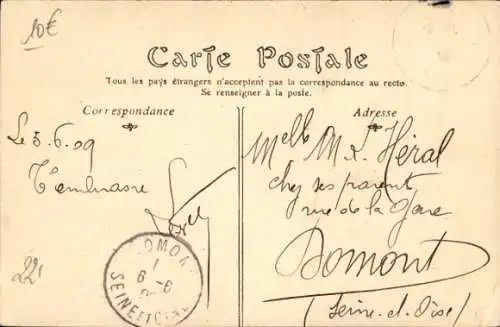 10€
Carte Postale
Tous les pays étrangers n'acceptent pas la correspondance au recto.
Se renseigner à la poste.
Correspondance
Adresse
Le 5.6.09
T'embrasse
Melle M L Héral
chez ses parent
rue de la Gare
Domont
(Seine-et-Oise)
DOMONT
6-6
SEINE ET OISE
22